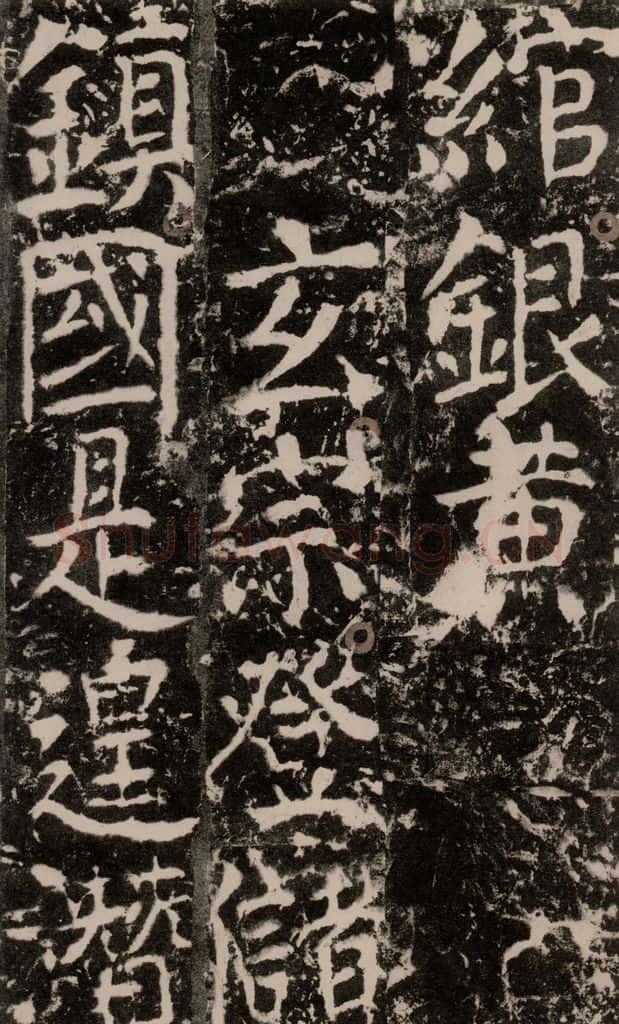 綰銀黄
玄宗登儲
鎮國是遑潛
Shufawang.CN